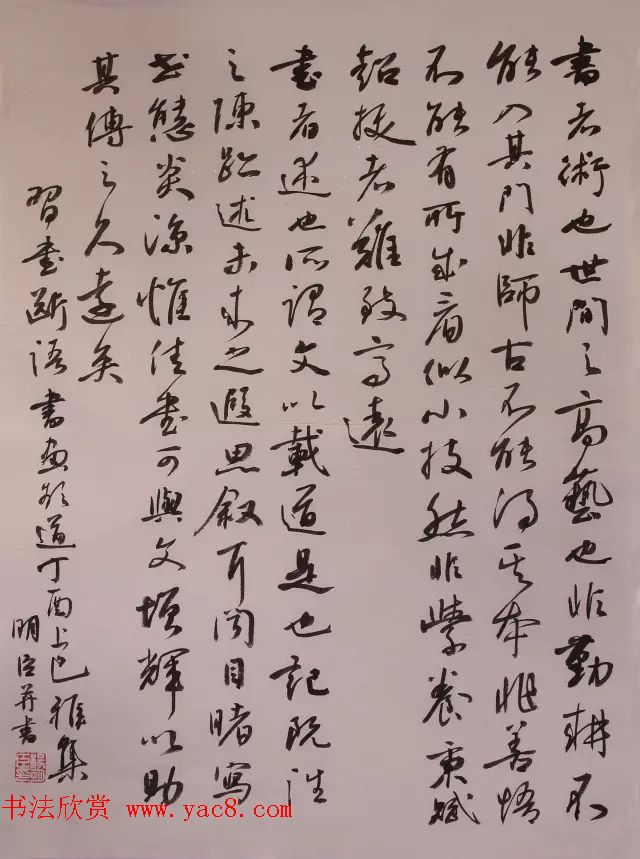 書者術也世間之高藝也非勤耕不
能入其門非師古不能得其本非善悟
不能有所成看似小技然非學養秉賦
超拔者難致高遠
書者述也所謂文以載道是也記既往
之陳跡述未來之遐思叙耳聞目睹寫
世態炎涼惟佳書可與文增輝以助
其傳之久遠矣
習書斷語書畫頻道丁酉上巳雅集
明臣并書
书法欣赏 www.yac8.com